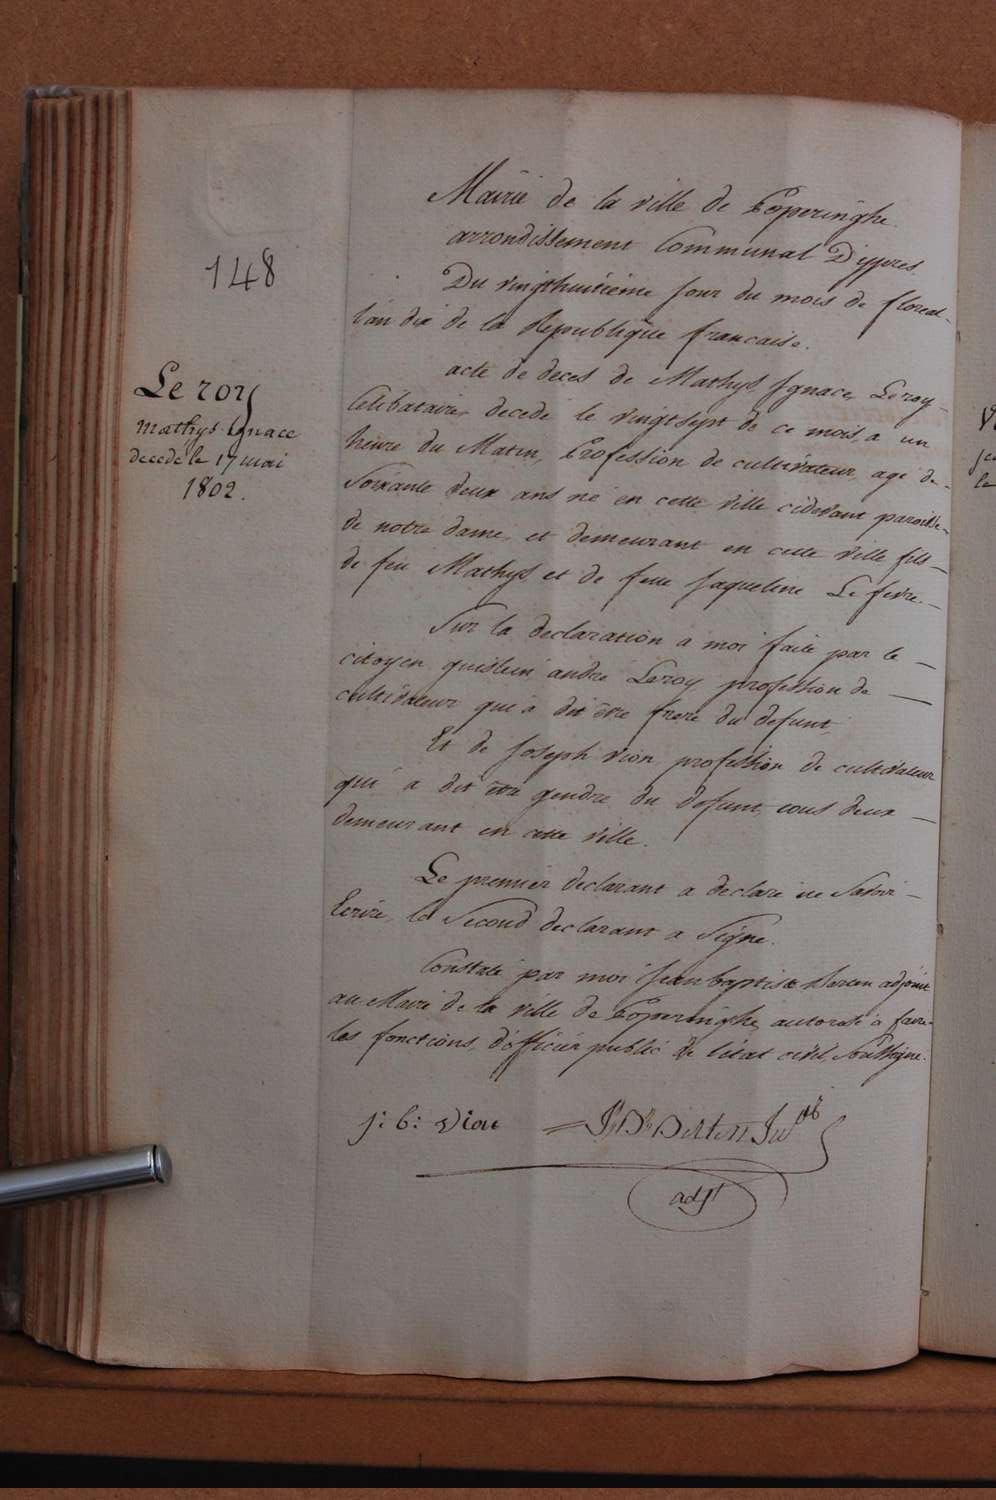 148
Leroy
Mathys Ignace
decede le 17 mai
1802.
Mairie de la ville de Poperinghe.
arrondissement Communal D'ijpres.
Du vingthuitieme Jour du mois de floreal
l'an dix de la Republique francaise.
acte de deces de Mathys Ignace Leroy
Celibataire, decede le vingtsept de ce mois, a un
heure du Matin, Profession de cultivateur, age de
Soixante deux ans né en cette ville cidevant paroisse
de notre dame, et demeurant en cette ville fils
de feu Mathys et de feue Jaqueline Lefevre.
Sur la declaration a moi faite par le
citoyen guislein andré Leroy profession de
cultivateur qui a dit être frere du defunt,
Et de Joseph vion profession de cultivateur
qui a dit être gendre du defunt, tous deux
demeurant en cette ville.
Le premier declarant a declaré ne Savoir
Ecrire, le Second declarant a Signé.
Constaté par moi Jean baptiste adjoint
au Maire de la ville de Poperinghe, autorisé a faire
les fonctions, d'officier public de l'état civil, Soussigné.
j: b: vion
adjt